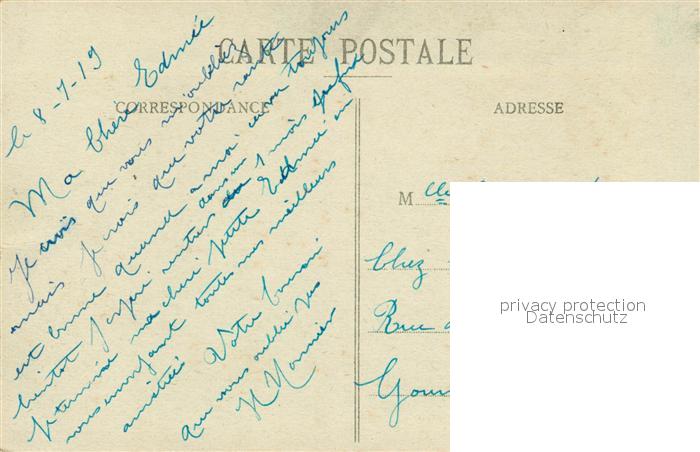 CARTE POSTALE
CORRESPONDANCE
ADRESSE
le 8-7-19
Ma Chère Edmée
Je crois que vous m'oubliez
mais je crois que votre santé
est bonne quand a moi ça va toujours
bientot j'espère rentrer dans 1 mois
Je termine ma cheri petite Edmée en
vous envoyant toutes mes meilleurs
amitiés Votre
qui vous oublie pas
M
Chez
Rue
privacy protection
Datenschutz